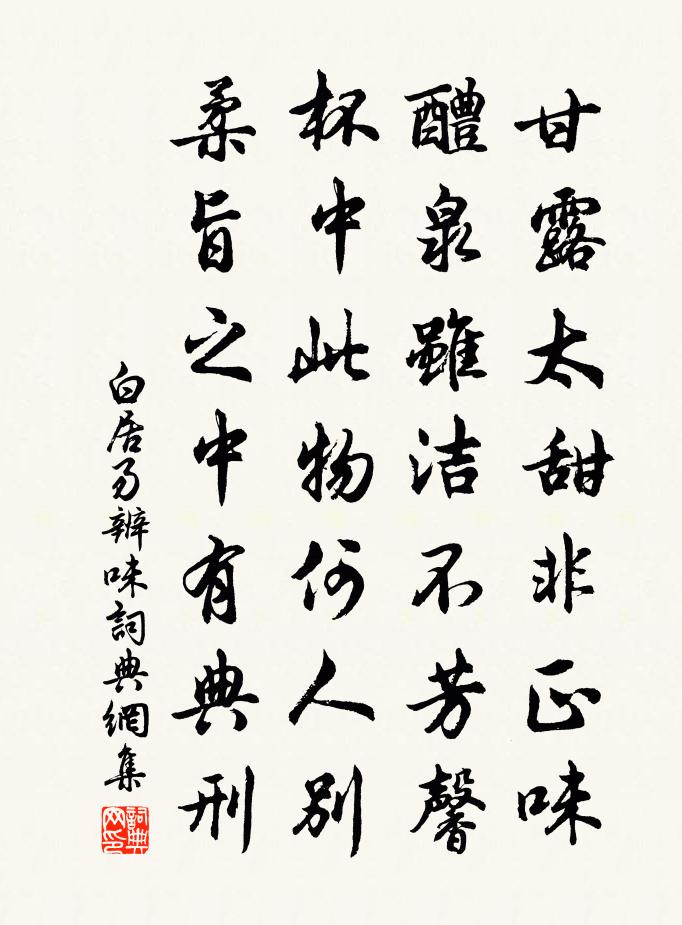 甘露太甜非正味
醴泉雖洁不芳馨
杯中此物何人别
柔旨之中有典刑
白居易辨味詞典網集
詞典網印